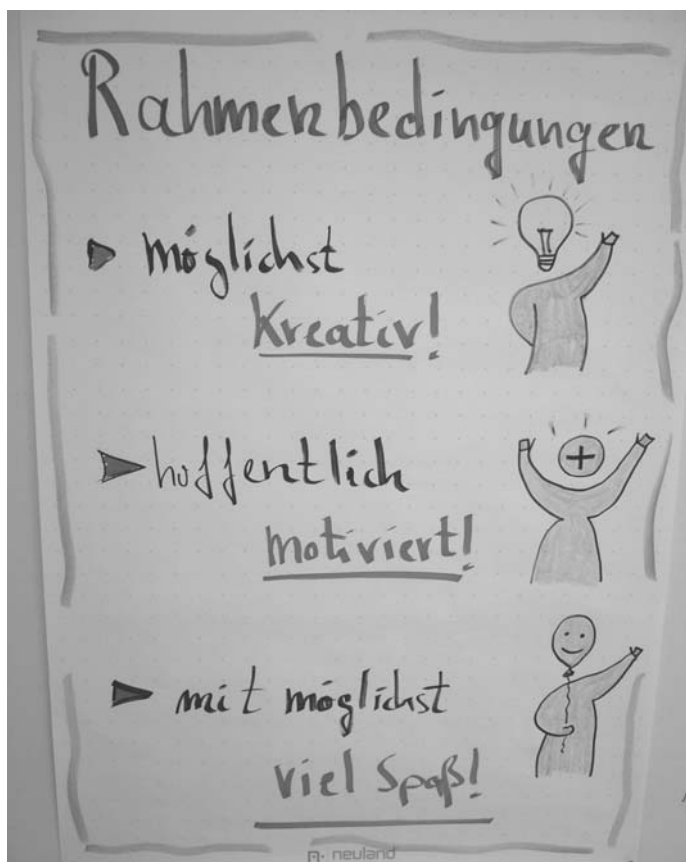 Rahmenbedingungen
möglichst
Kreativ!
hoffentlich
motiviert!
mit möglichst
viel Spaß!
neuland